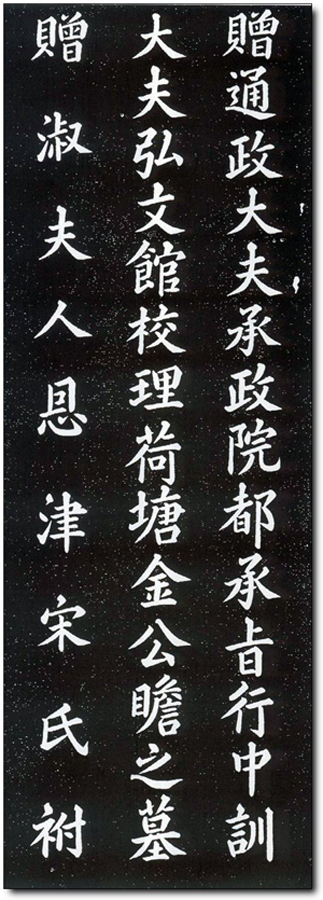 贈通政大夫承政院都承旨行中訓
大夫弘文館校理荷塘金公瞻之墓
贈淑夫人恩津宋氏祔